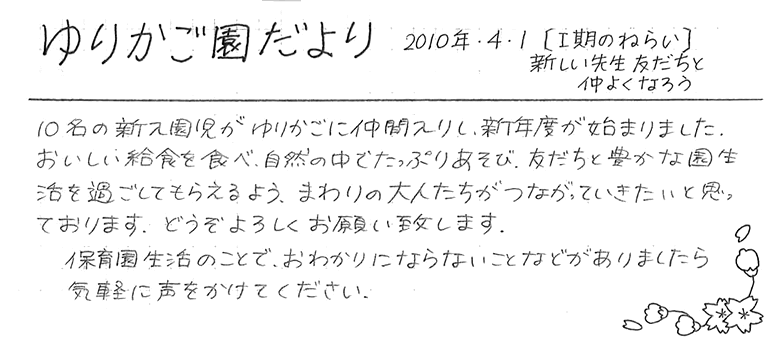 ゆりかご園だより 2010年・4・1 [I期のねらい]
新しい先生友だちと
仲よくなろう
10名の新入園児がゆりかごに仲間入りし、新年度が始まりました.
おいしい給食を食べ、自然の中でたっぷりあそび、友だちと豊かな園生
活を過ごしてもらえるよう、まわりの大人たちがつながっていきたいと思っ
ております. どうぞよろしくお願い致します.
保育園生活のことで、おわかりにならないことなどがありましたら
気軽に声をかけてください.